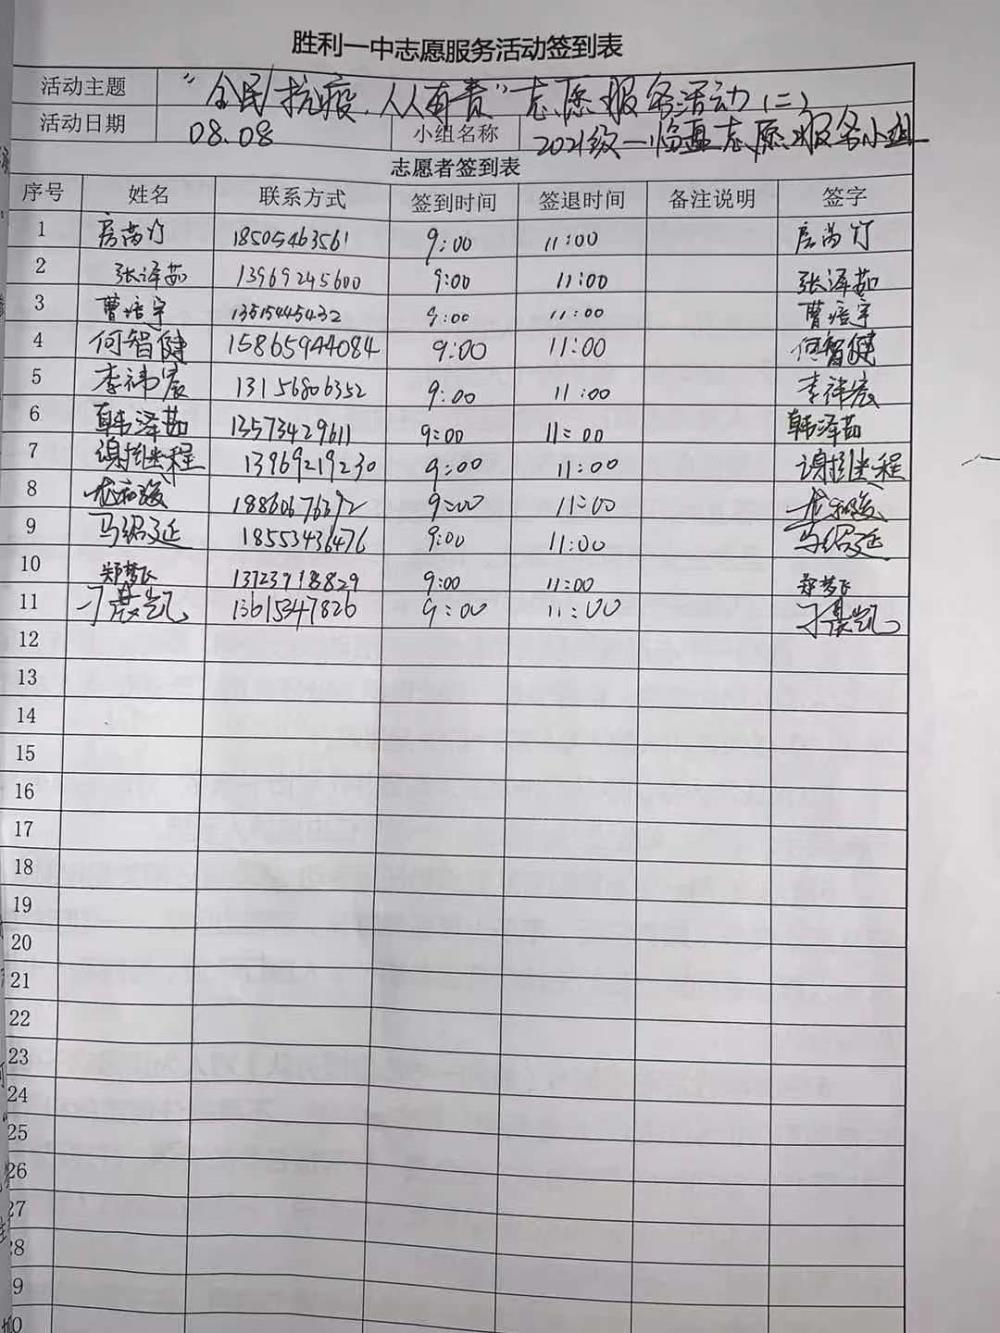 胜利一中志愿服务活动签到表
活动主题 "全民抗疫,人人有责"志愿服务活动(二)
活动日期 08.08 小组名称 2021级一临盘志愿服务小组
志愿者签到表
序号 姓名 联系方式 签到时间 签退时间 备注说明 签字
1 18505463561 9:00 11:00
2 张泽茹 13969245600 9:00 11:00 张泽茹
3 曹培宇 13515445432 9:00 11:00 曹培宇
4 何智健 15865944084 9:00 11:00 何智健
5 李祎宸 13156806352 9:00 11:00 李祎宸
6 韩泽茹 13573429611 9:00 11:00 韩泽茹
7 13969219230 9:00 11:00
8 9:00 11:00
9 马绍延 18553436476 9:00 11:00 马绍延
10 郑梦飞 13723918829 9:00 11:00 郑梦飞
11 13615347826 9:00 11:00
12
13
14
15
16
17
18
19
20
21
22
23
24
25
26
27
28
9